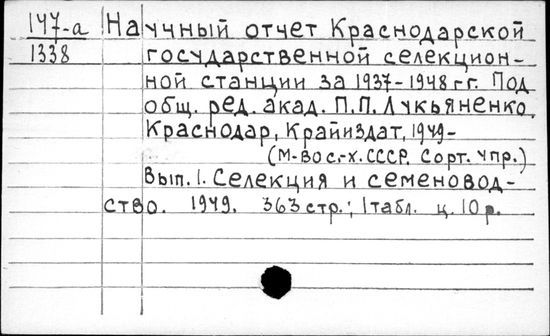 147-а Научный отчет Краснодарской
1338 государственной селекцион-
ной станции за 1937-1948 гг. Под
общ. ред. акад. П.П. Лукьяненко.
Краснодар, Крайиздат, 1949-
(М-во с.-х. СССР. Сорт. упр.)
Вып. 1. Селекция и семеновод-
ство. 1949. 363 стр.; 1 табл. ц. 10 р.